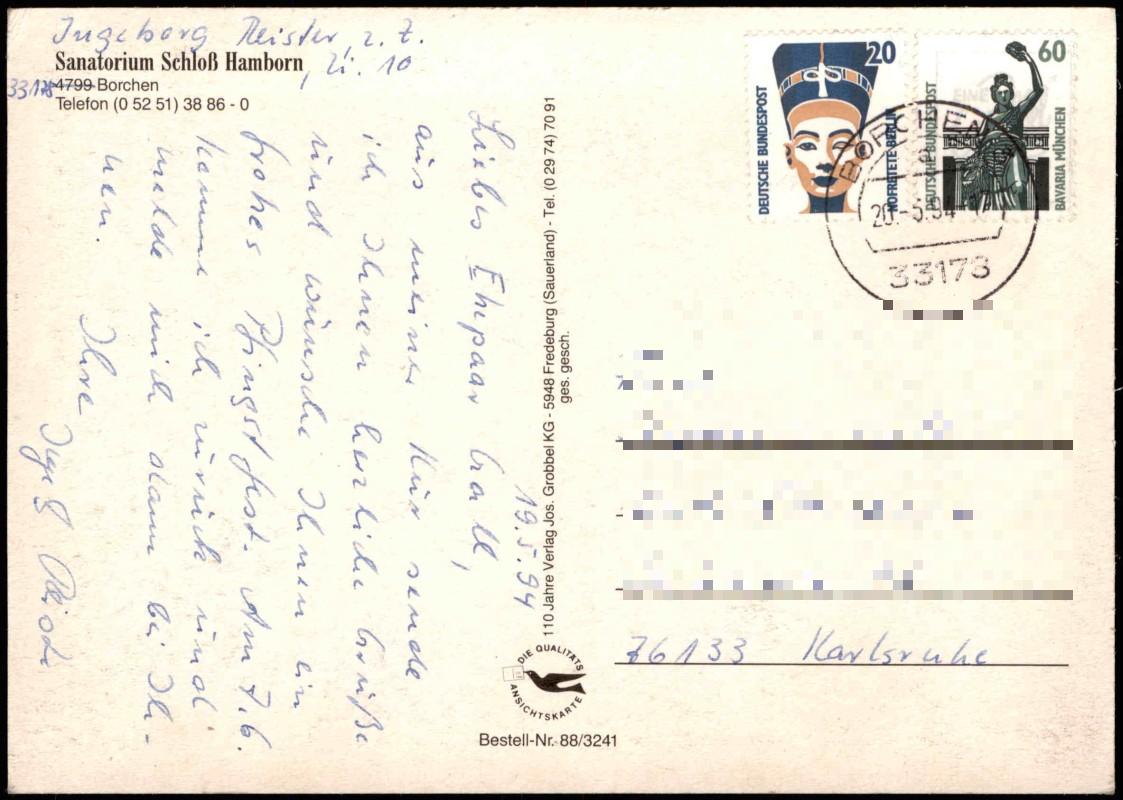 Ingeborg Meister, z. Z.
Sanatorium Schloß Hamborn
, Zi. 10
33178 4799 Borchen
Telefon (0 52 51) 38 86 - 0
19.5.94
Liebes Ehepaar Gall,
aus meiner Kur sende
ich Ihnen herzliche Grüße
und wünsche Ihnen ein
frohes Pfingstfest. Am 7.6.
komme ich zurück und
melde mich dann bei Ih-
nen.
Ihre
110 Jahre Verlag Jos. Grobbel KG - 5948 Fredeburg (Sauerland) - Tel. (0 29 74) 70 91
ges. gesch.
DIE QUALITÄTS
ANSICHTSKARTE
Bestell-Nr. 88/3241
DEUTSCHE BUNDESPOST
20
NOFRETETE BERLIN
DEUTSCHE BUNDESPOST
60
BAVARIA MÜNCHEN
BORCHEN
20.-5.94
33178
76133 Karlsruhe